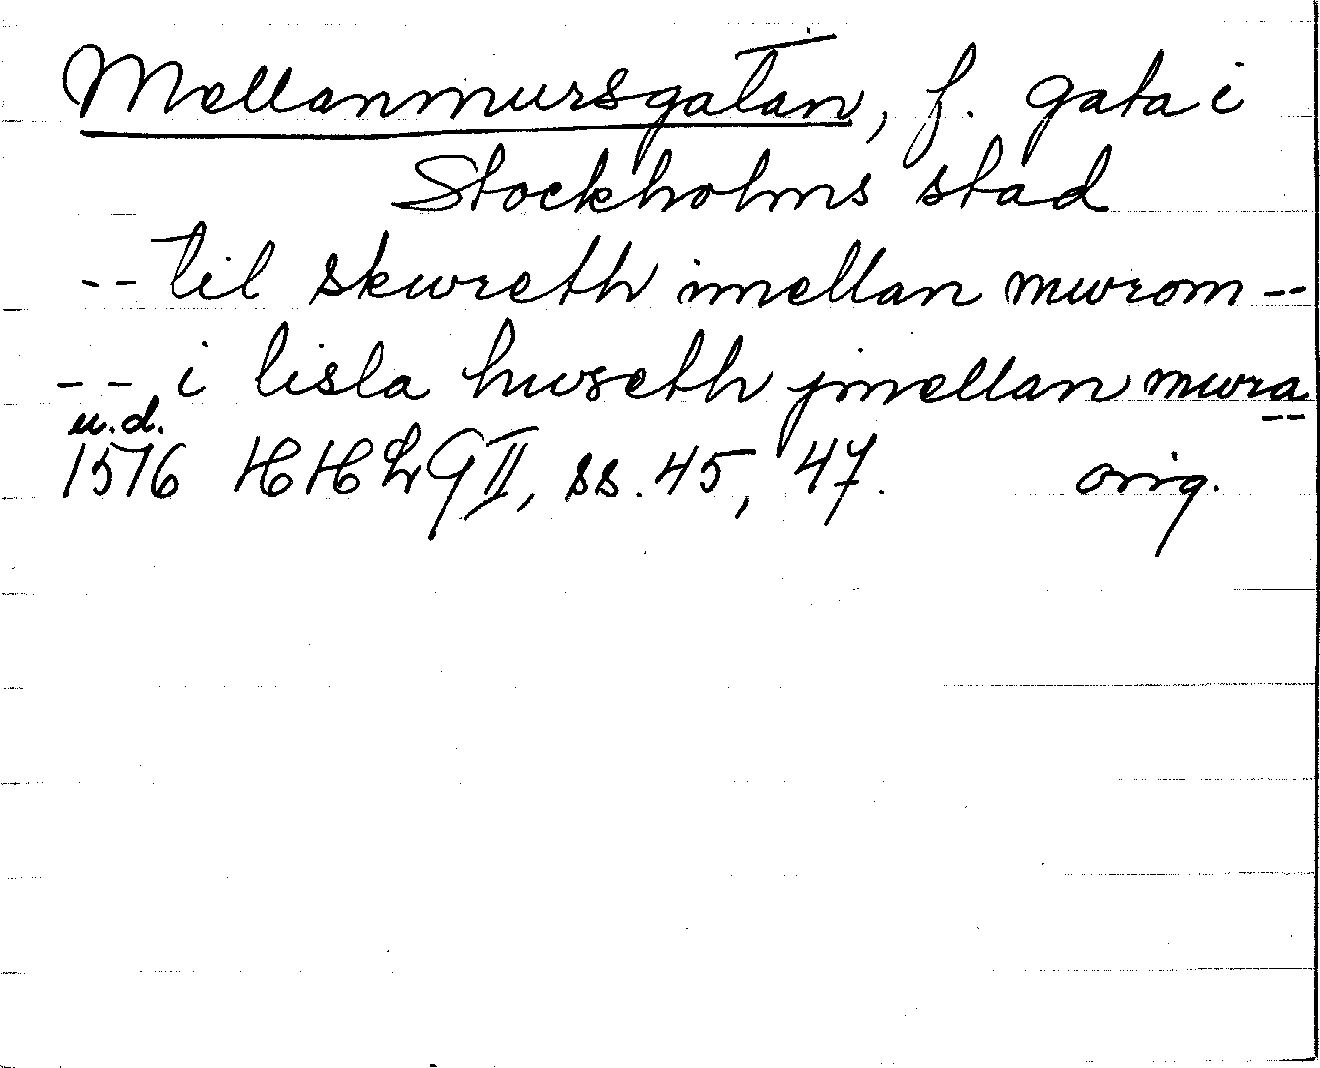 Mellanmursgatan, f. gata i
Stockholms stad
-- til skwreth imellan mwrom --
-- i lisla hwseth jmellan mwra --
u.d.
1576 HHLG II, ss. 45, 47. orig.